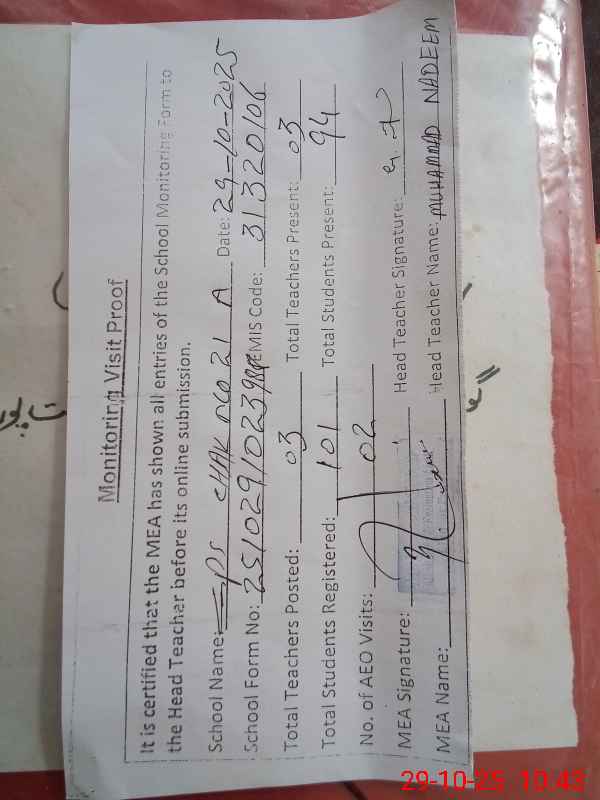 Monitoring Visit Proof
It is certified that the MEA has shown all entries of the School Monitoring Form to
the Head Teacher before its online submission.
School Name: PS CHAK NO 21 A Date: 29-10-2025
School Form No: EMIS Code: 31320106
Total Teachers Posted: 03 Total Teachers Present: 03
Total Students Registered: 101 Total Students Present: 94
No. of AEO Visits: 02
MEA Signature: Head Teacher Signature:
MEA Name: Head Teacher Name: MUHAMMAD NADEEM
29-10-25 10:43